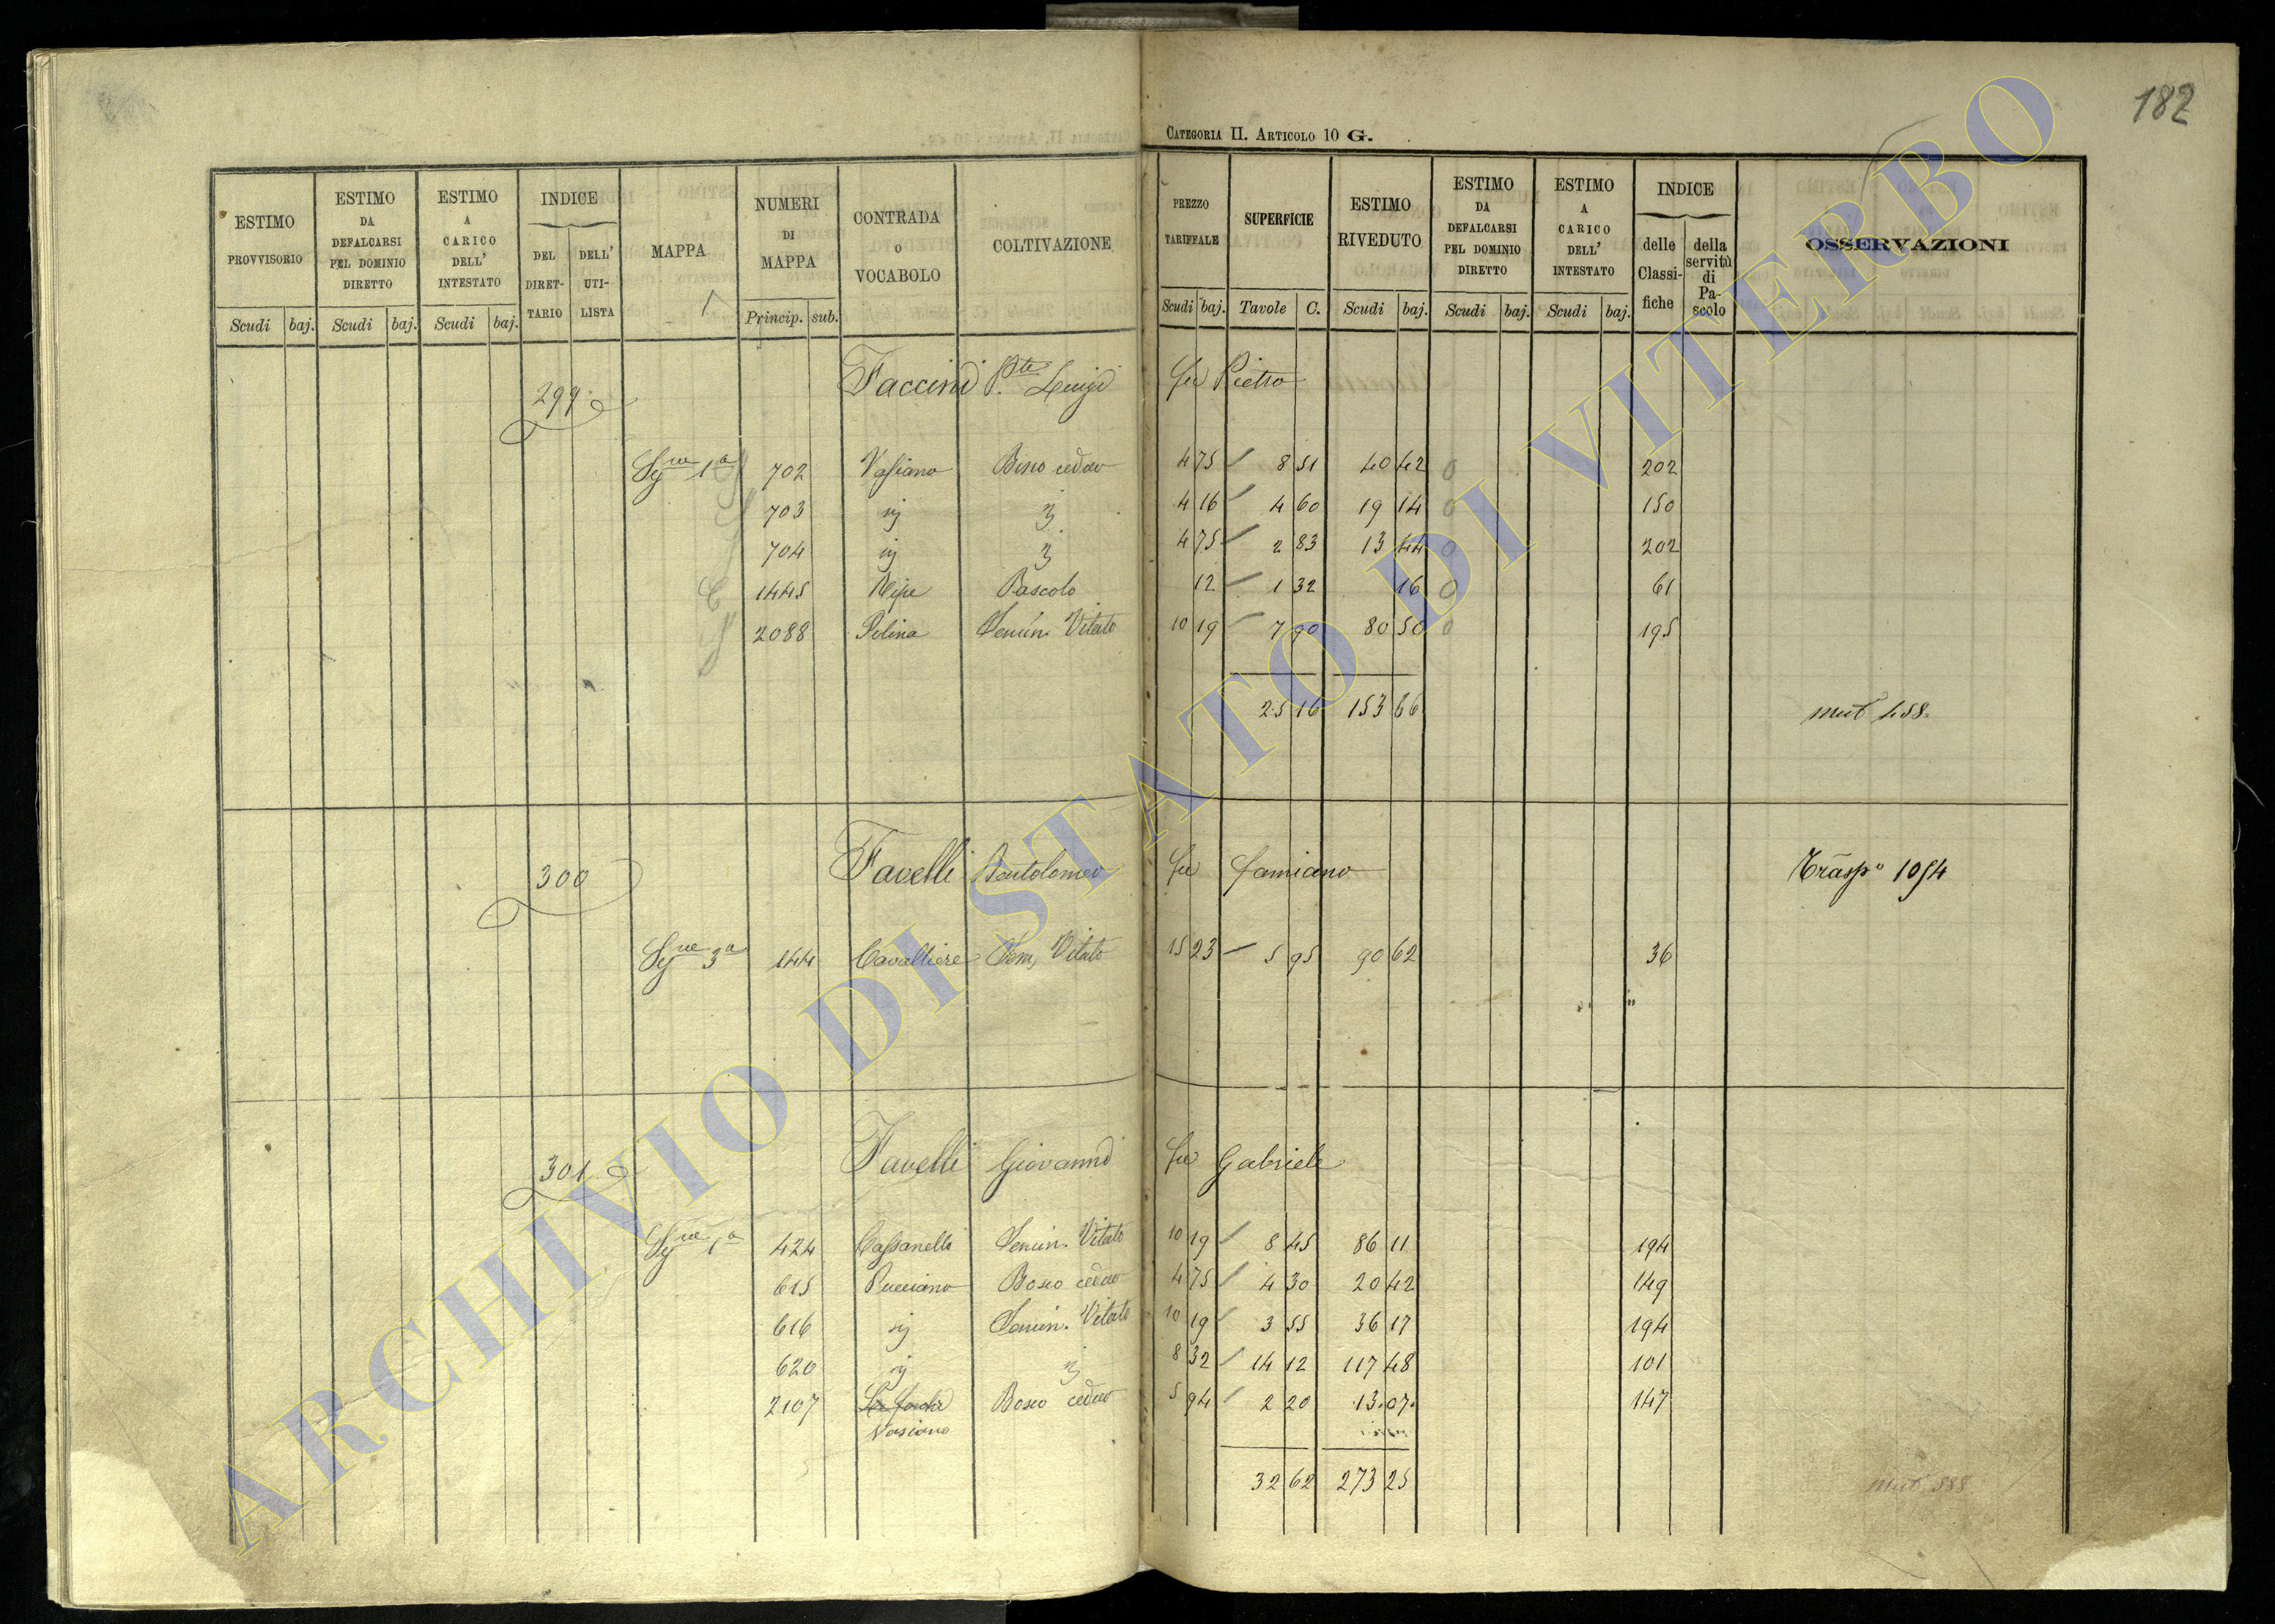 182
CATEGORIA II. ARTICOLO 10 G.
ESTIMO PROVVISORIO | ESTIMO DA DEFALCARSI PEL DOMINIO DIRETTO | ESTIMO A CARICO DELL' INTESTATO | INDICE | MAPPA | NUMERI DI MAPPA | CONTRADA O VOCABOLO | COLTIVAZIONE | PREZZO TARIFFALE | SUPERFICIE | ESTIMO RIVEDUTO | ESTIMO DA DEFALCARSI PEL DOMINIO DIRETTO | ESTIMO A CARICO DELL' INTESTATO | INDICE | OSSERVAZIONI
DEL DIRETTARIO | DELL' UTILISTA | delle Classifiche | della servitù di Pascolo
Scudi baj. Scudi baj. Scudi baj. Princip. sub. Scudi baj. Tavole C. Scudi baj. Scudi baj. Scudi baj.
299 Faccini Pte Luigi fu Pietro
Sne 1a 702 Vasiano Bosco ceduo 4 75 8 51 40 42 0 202
703 4 16 4 60 19 14 0 150
704 4 75 2 83 13 44 0 202
1445 Ripe Pascolo 12 1 32 16 0 61
2088 Semin. Vitato 10 19 7 90 80 50 0 195
25 16 153 66 mut 458
300 Favelli Bartolomeo fu famiano Traspo 1054
Sne 3a 144 Cavalliere Sem. Vitato 15 23 5 95 90 62 36
301 Favelli Giovanni fu Gabriele
Sne 1a 424 Cassanello Semin. Vitato 10 19 8 45 86 11 194
615 Pucciano Bosco ceduo 4 75 4 30 20 42 149
616 Semin. Vitato 10 19 3 55 36 17 194
620 8 32 14 12 117 48 101
2107 Bosco ceduo 5 94 2 20 13.07. 147
Vasiano
32 62 273 25 mut 888
ARCHIVIO DI STATO DI VITERBO